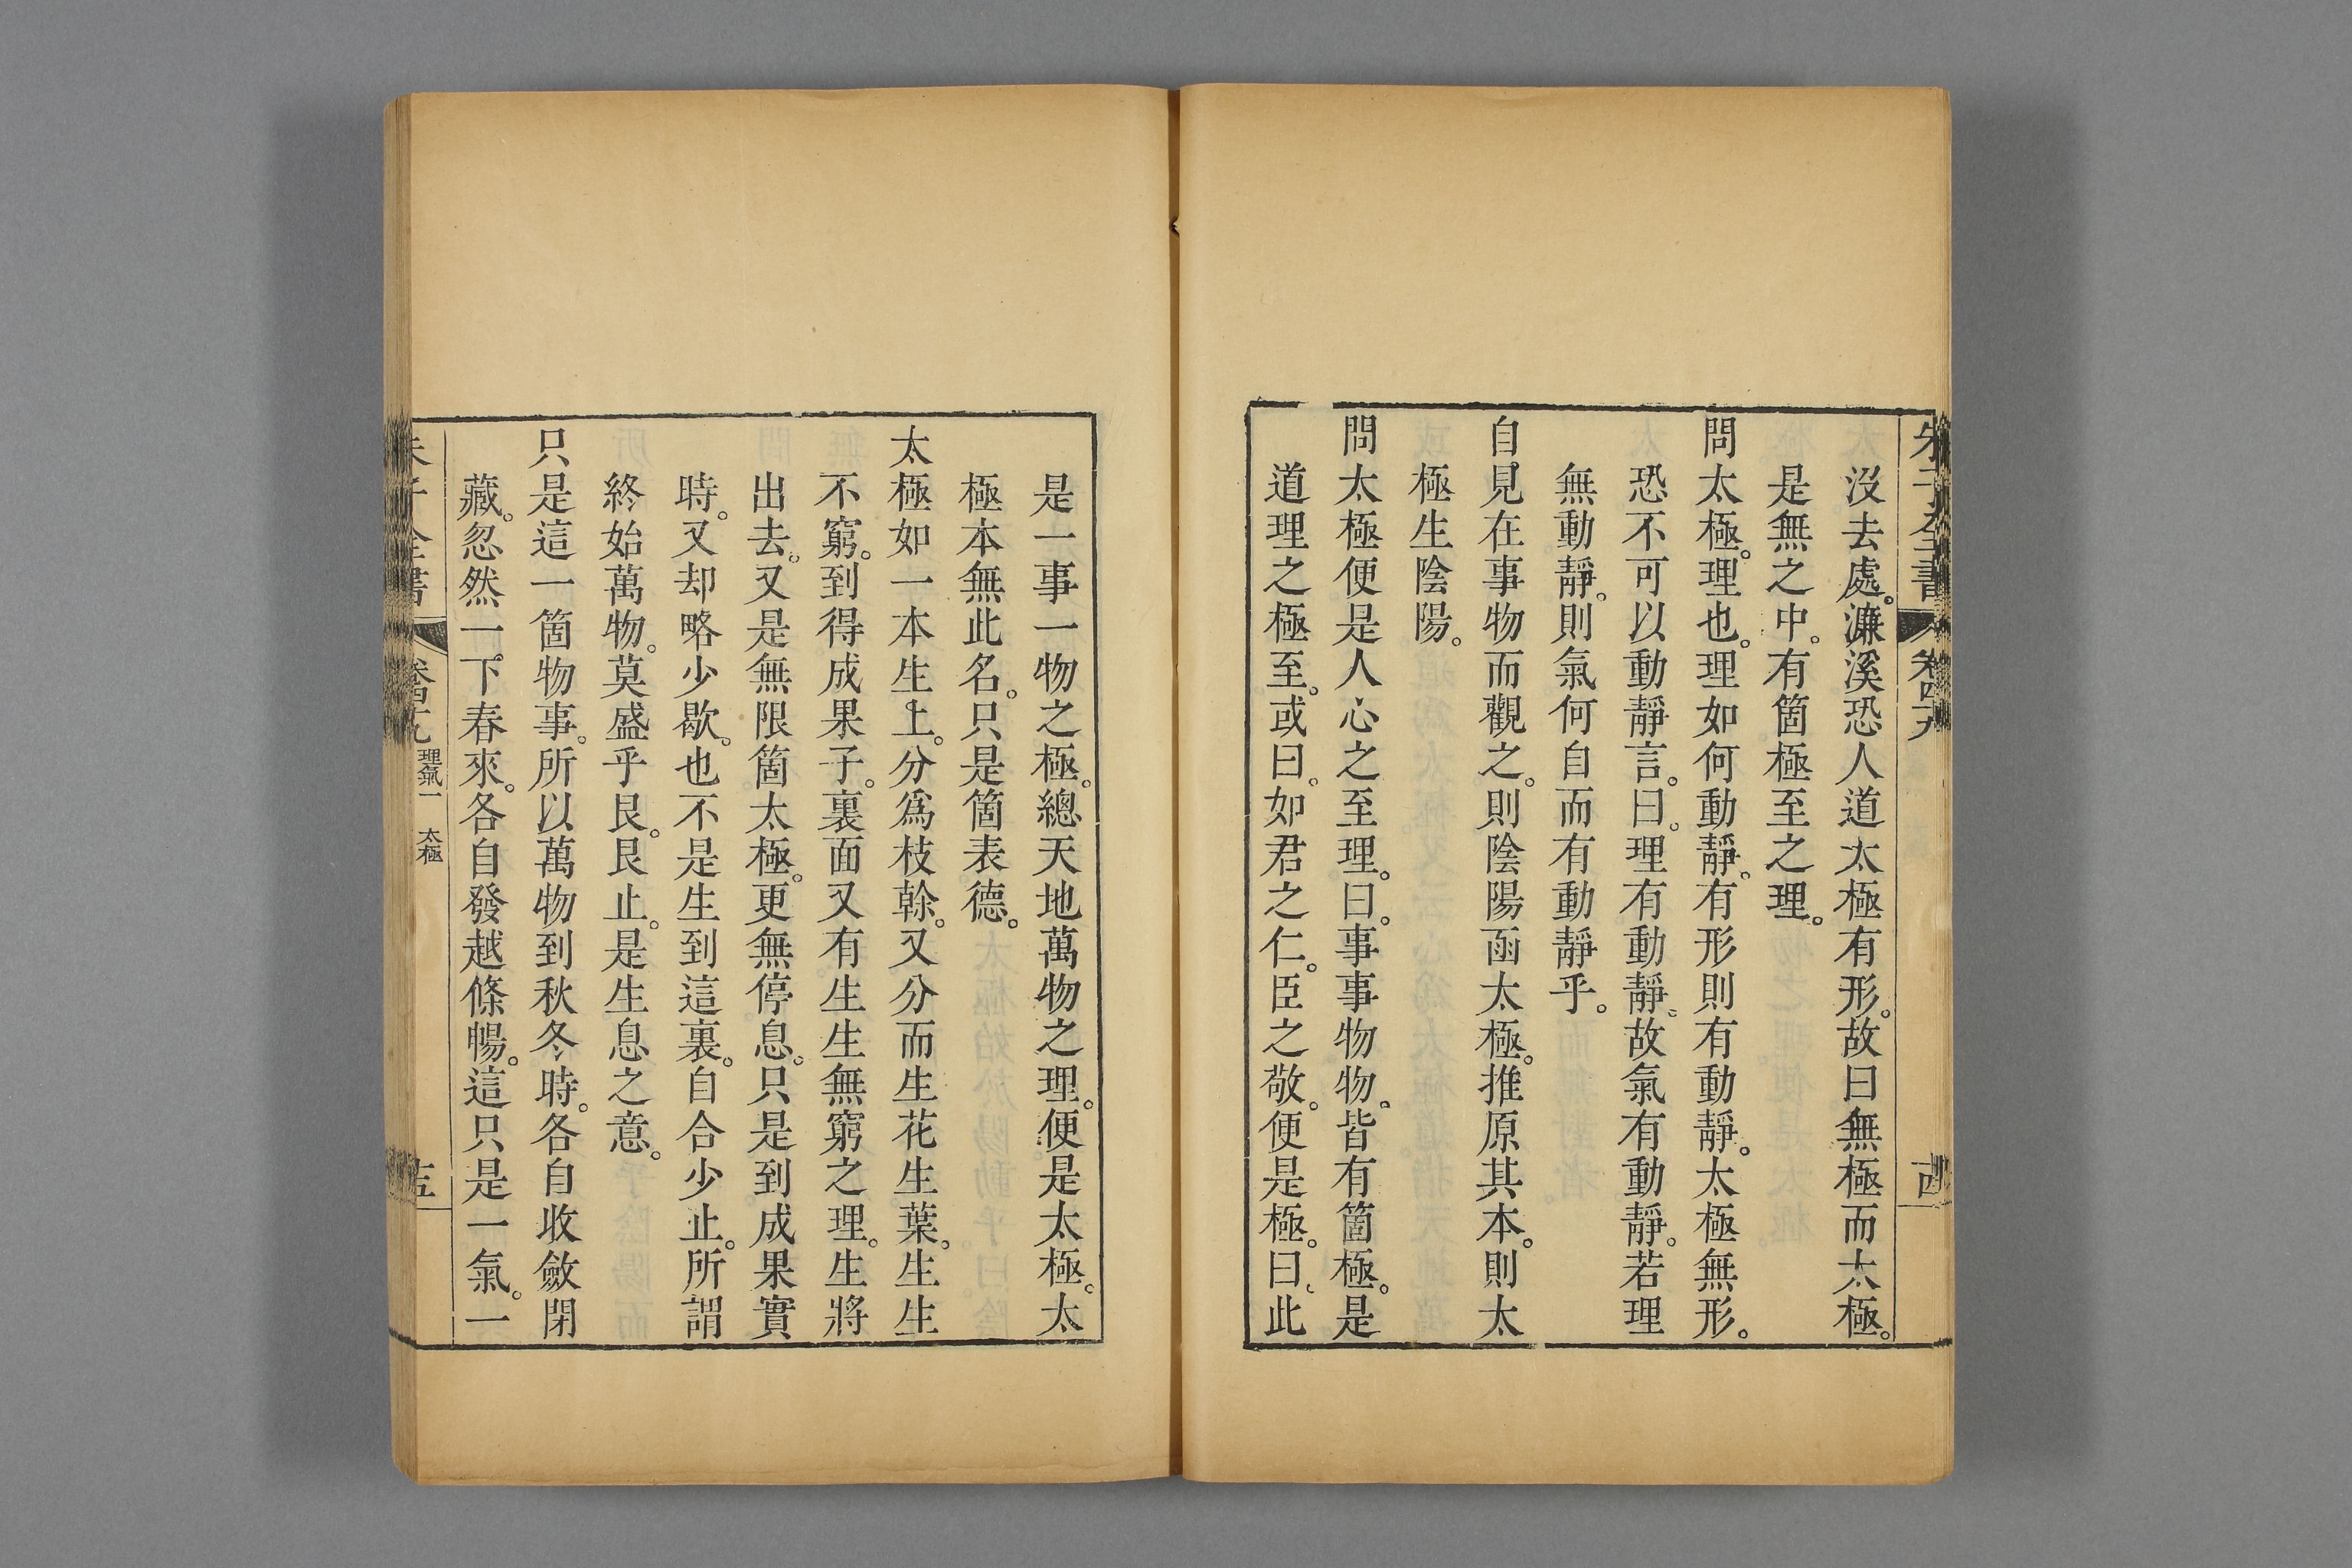 朱子全書 卷四十九 十四
沒去處。濂溪恐人道太極有形。故曰無極而太極。
是無之中。有箇極至之理。
問太極。理也。理如何動靜。有形則有動靜。太極無形。
恐不可以動靜言。曰。理有動靜。故氣有動靜。若理
無動靜。則氣何自而有動靜乎。
自見在事物而觀之。則陰陽函太極。推原其本。則太
極生陰陽。
問太極便是人心之至理。曰。事事物物。皆有箇極。是
道理之極至。或曰。如君之仁。臣之敬。便是極。曰。此
是一事一物之極。總天地萬物之理。便是太極。太
極本無此名。只是箇表德。
太極如一本生上。分爲枝榦。又分而生花生葉。生生
不窮。到得成果子。裏面又有生生無窮之理。生將
出去。又是無限箇太極。更無停息。只是到成果實
時。又却略少歇。也不是生到這裏。自合少止。所謂
終始萬物。莫盛乎艮。艮止。是生息之意。
只是這一箇物事。所以萬物到秋冬時。各自收斂閉
藏。忽然一下春來。各自發越條暢。這只是一氣。一
朱子全書 卷四十九 理氣一 太極 十五